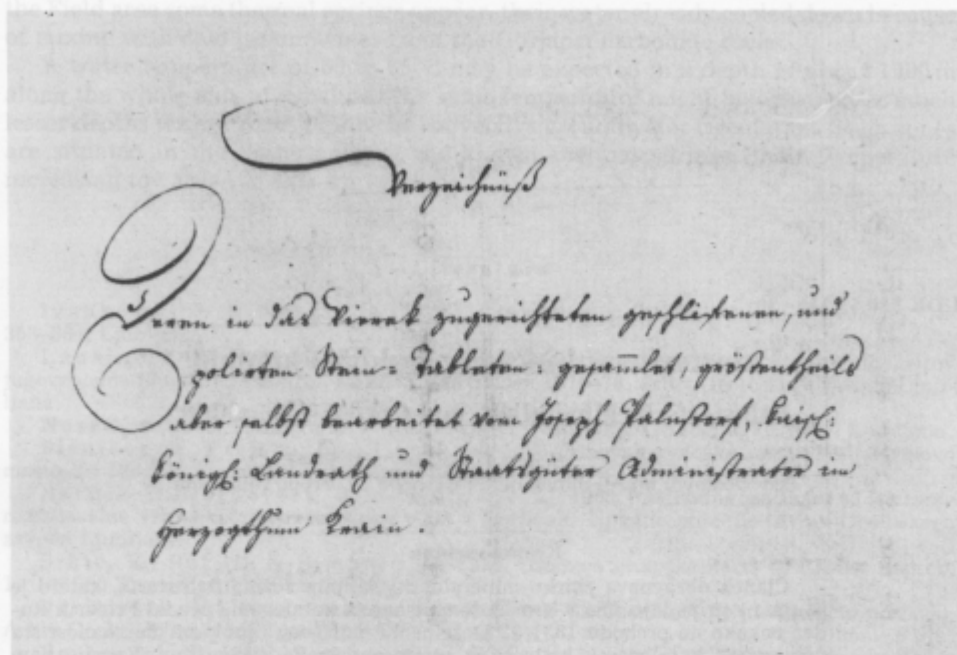 Verzeichnüß
Deren in das Vierek zugerichteten geschlifenen, und
polirten Stein = Tableten : gesam̅let, größentheils
aber selbst bearbeitet vom Joseph Palmstorf, kaisl:
königl: Landrath und Staatsgüter Administrator im
Herzogthum Krain.